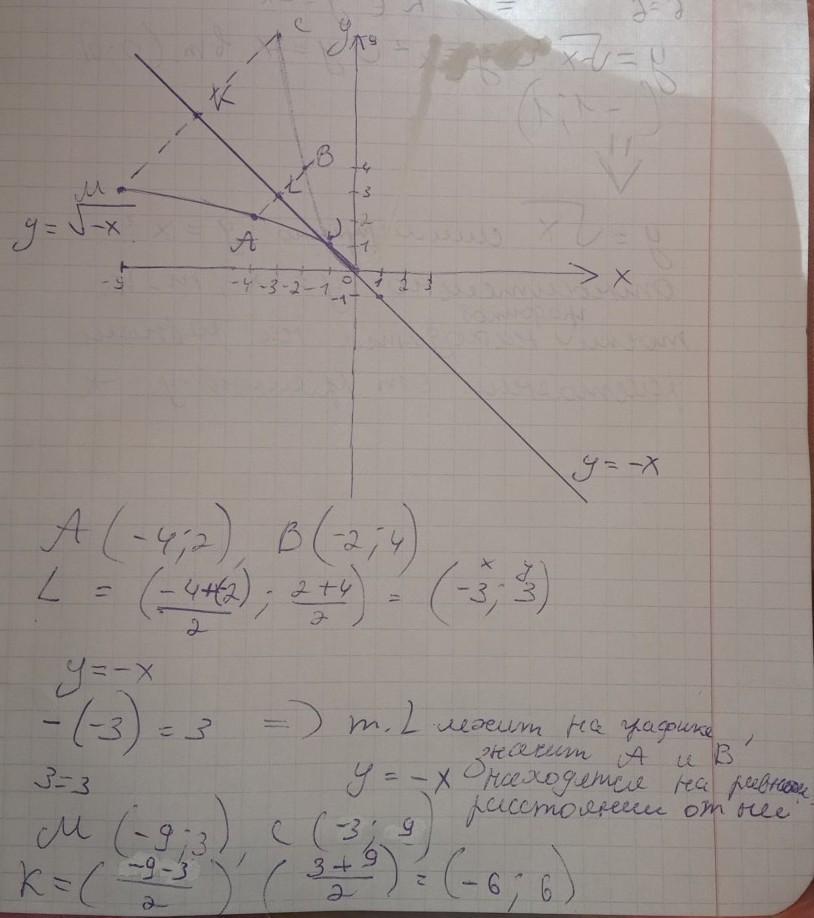 C y
9
K
B
4
M L 3
y = √-x A 2
1
-9 -4 -3 -2 -1 0 1 2 3 x
-1
y = -x
A (-4; 2), B (-2; 4)
L = ((-4+(-2))/2 ; (2+4)/2) = (-3; 3)
x y
y = -x
-(-3) = 3 => т. L лежит на графике,
значит A и B
3=3 y = -x находятся на равном
расстоянии от неё
M (-9; 3), C (-3; 9)
K = ((-9-3)/2) ((3+9)/2) = (-6; 6)